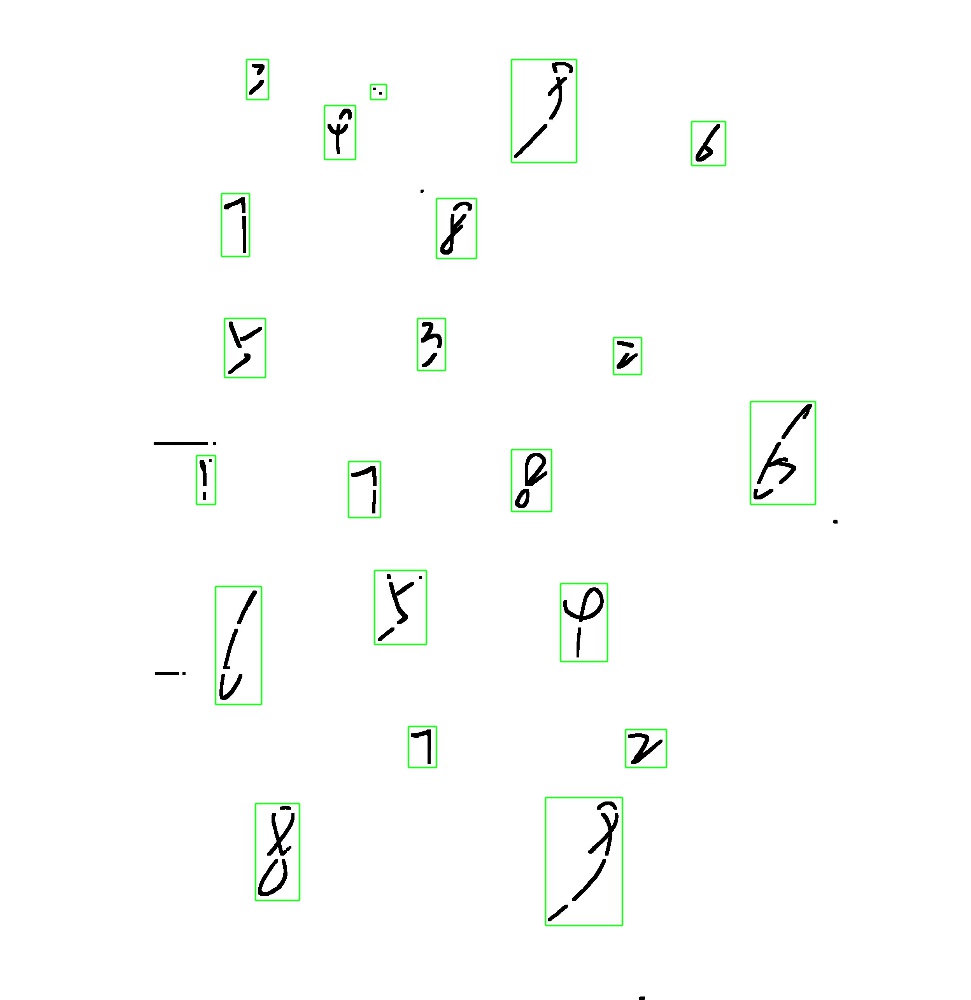 3 4 9 6
7 8
5 3 2
1 7 8 6
6 5 4
7 2
8 9